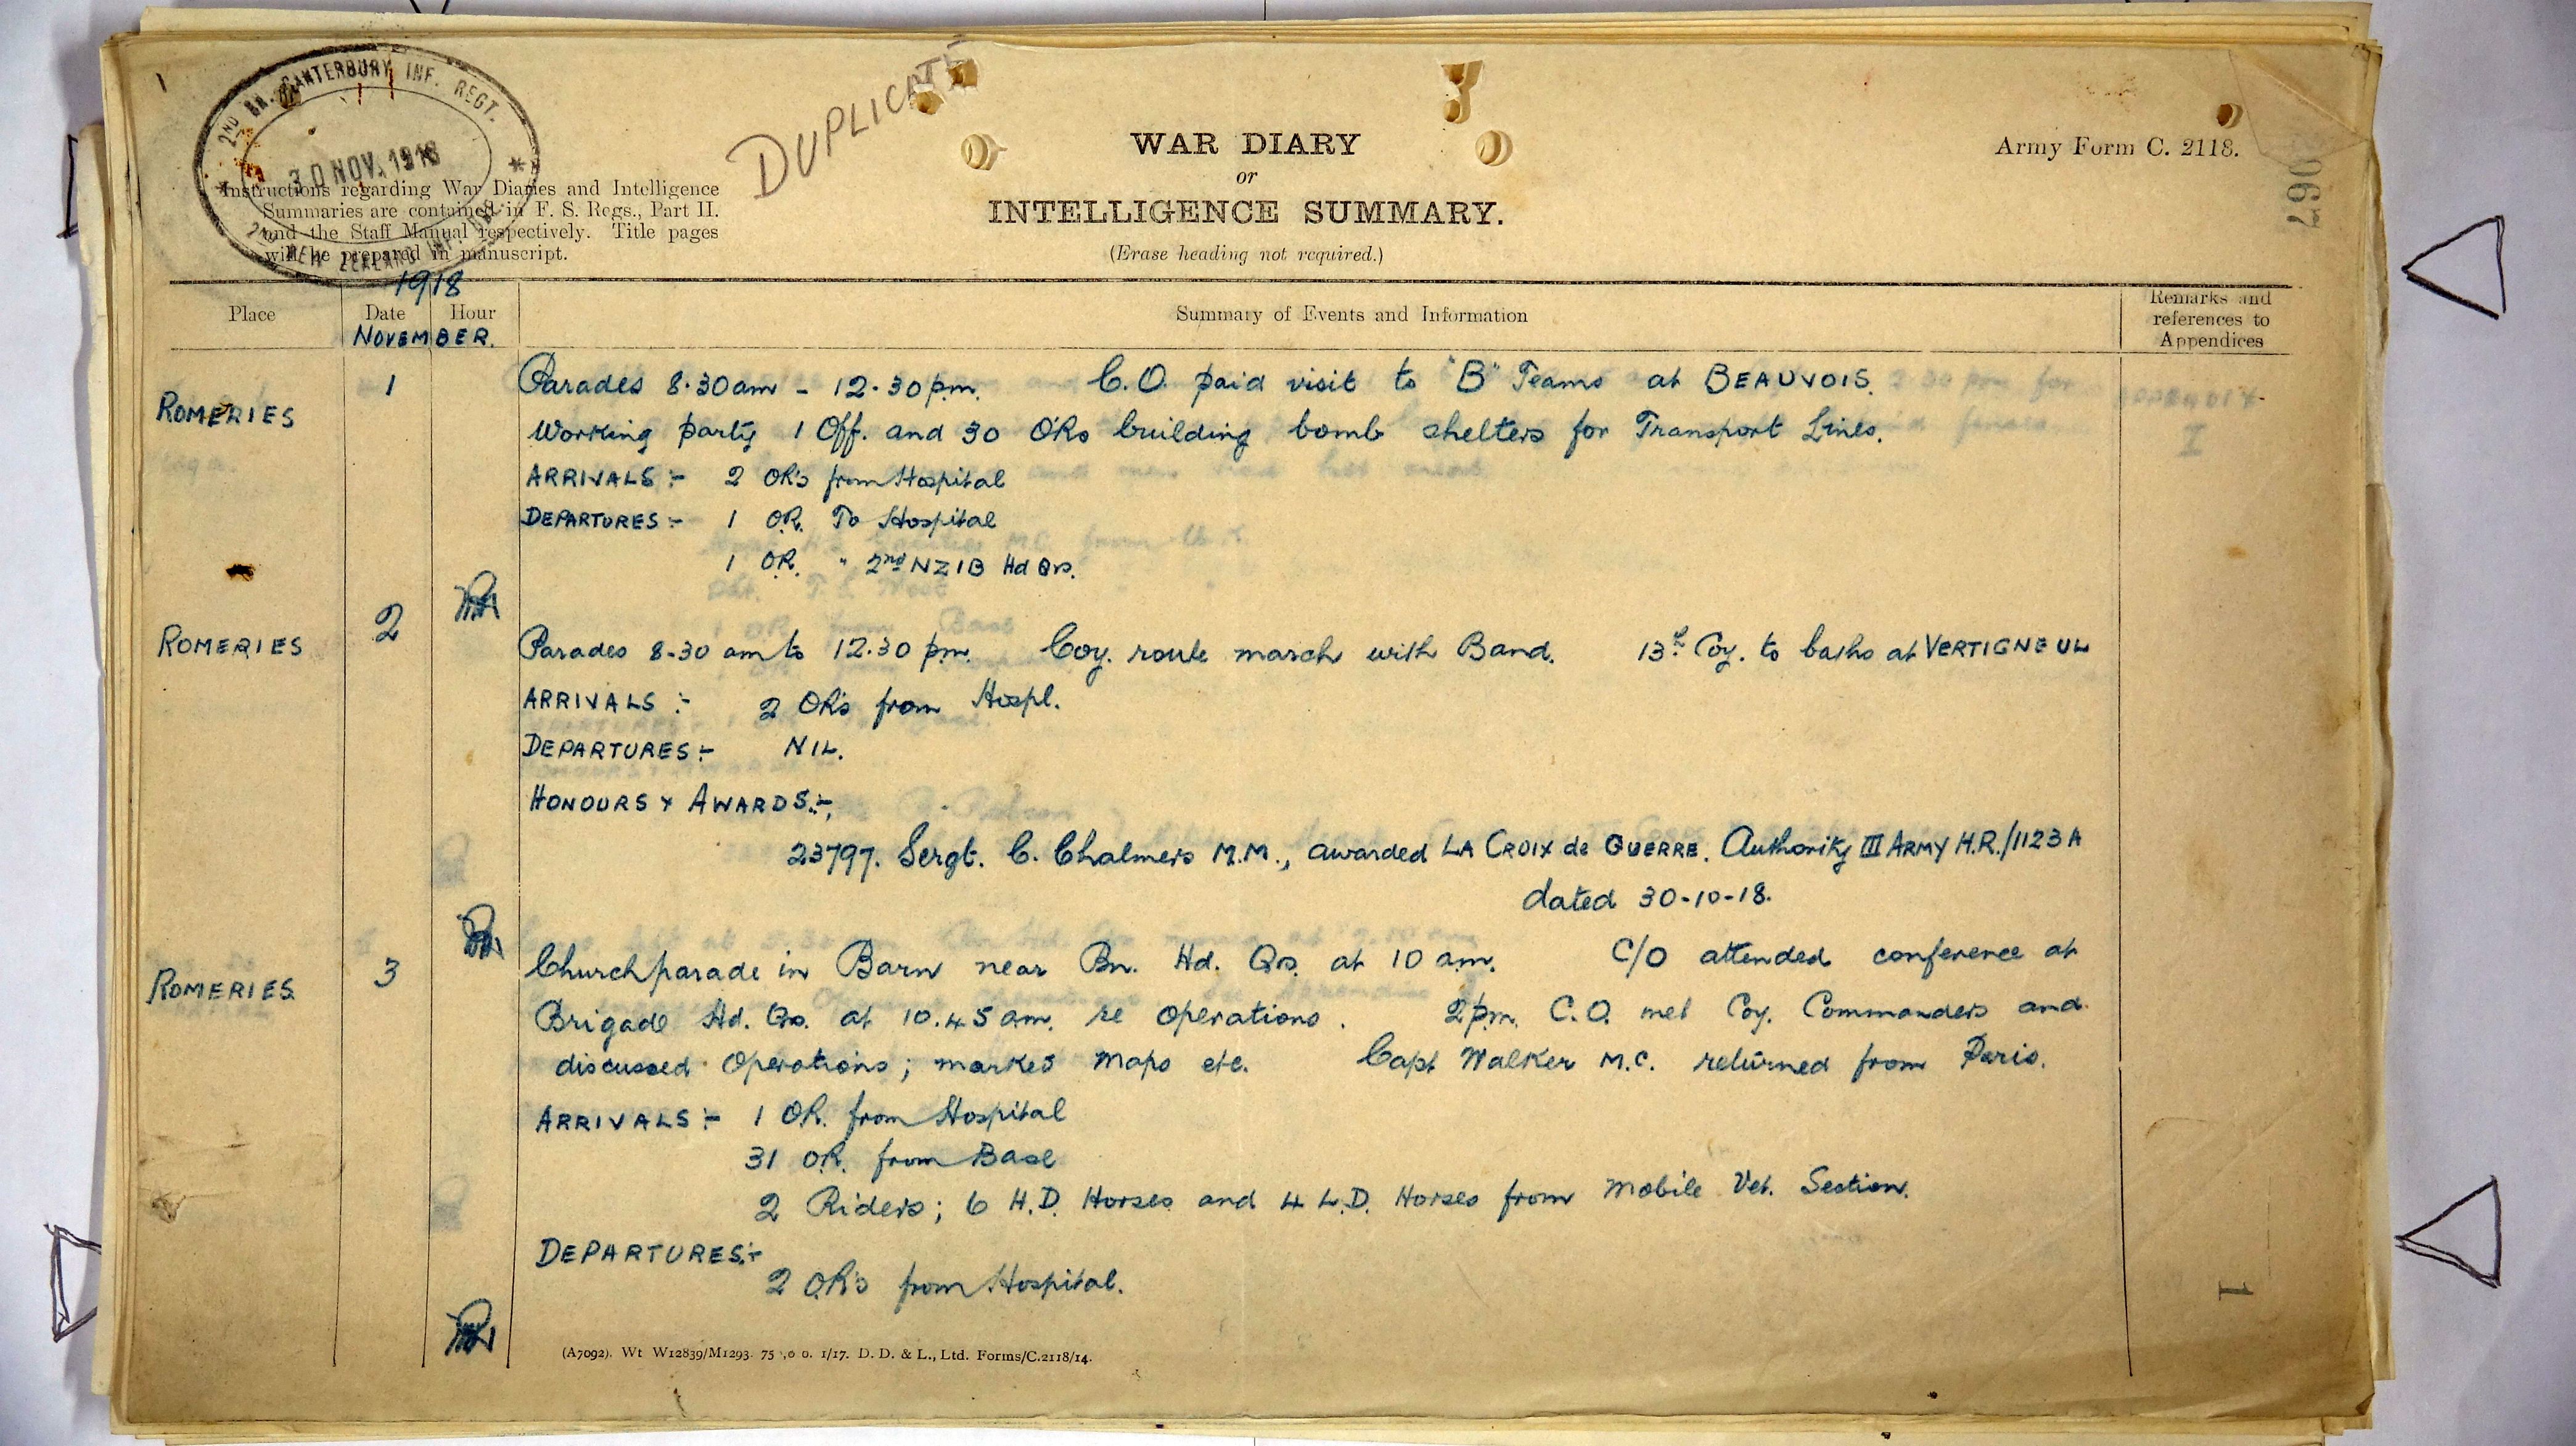 2ND BN. CANTERBURY INF. REGT.
30 NOV. 1918
2ND NEW ZEALAND INF. BDE.
DUPLICATE
WAR DIARY
or
INTELLIGENCE SUMMARY.
(Erase heading not required.)
Army Form C. 2118.
3067
Instructions regarding War Diaries and Intelligence
Summaries are contained in F. S. Regs., Part II.
and the Staff Manual respectively. Title pages
will be prepared in manuscript.
1918
Place Date Hour Summary of Events and Information Remarks and
references to
Appendices
NOVEMBER.
ROMERIES 1 Parades 8.30am - 12.30pm. C.O. paid visit to "B" Teams at BEAUVOIS.
Working party 1 Off. and 30 ORs building bomb shelters for Transport Lines.
ARRIVALS :- 2 OR's from Hospital
DEPARTURES :- 1 O.R. To Hospital
1 O.R. " 2nd NZIB Hd Qrs.
ROMERIES 2 Parades 8-30 am to 12.30 pm. Coy. route march with Band. 13th Coy. to baths at VERTIGNEUL
ARRIVALS :- 2 OR's from Hospl.
DEPARTURES :- NIL.
HONOURS & AWARDS :-
23797. Sergt. C. Chalmers M.M., awarded LA CROIX de GUERRE. Authority III ARMY H.R./1123A
dated 30-10-18.
ROMERIES 3 Church parade in Barn near Bn. Hd. Qrs. at 10 am. C/O attended conference at
Brigade Hd. Qrs. at 10.45 am. re operations. 2pm. C.O. met Coy. Commanders and
discussed Operations; marked maps etc. Capt Walker M.C. returned from Paris.
ARRIVALS :- 1 OR. from Hospital
31 O.R. from Base
2 Riders; 6 H.D. Horses and 4 L.D. Horses from Mobile Vet. Section.
DEPARTURES :-
2 OR's from Hospital.
1
(A7092). Wt W12839/M1293. 75 ,0 0. 1/17. D. D. & L., Ltd. Forms/C.2118/14.